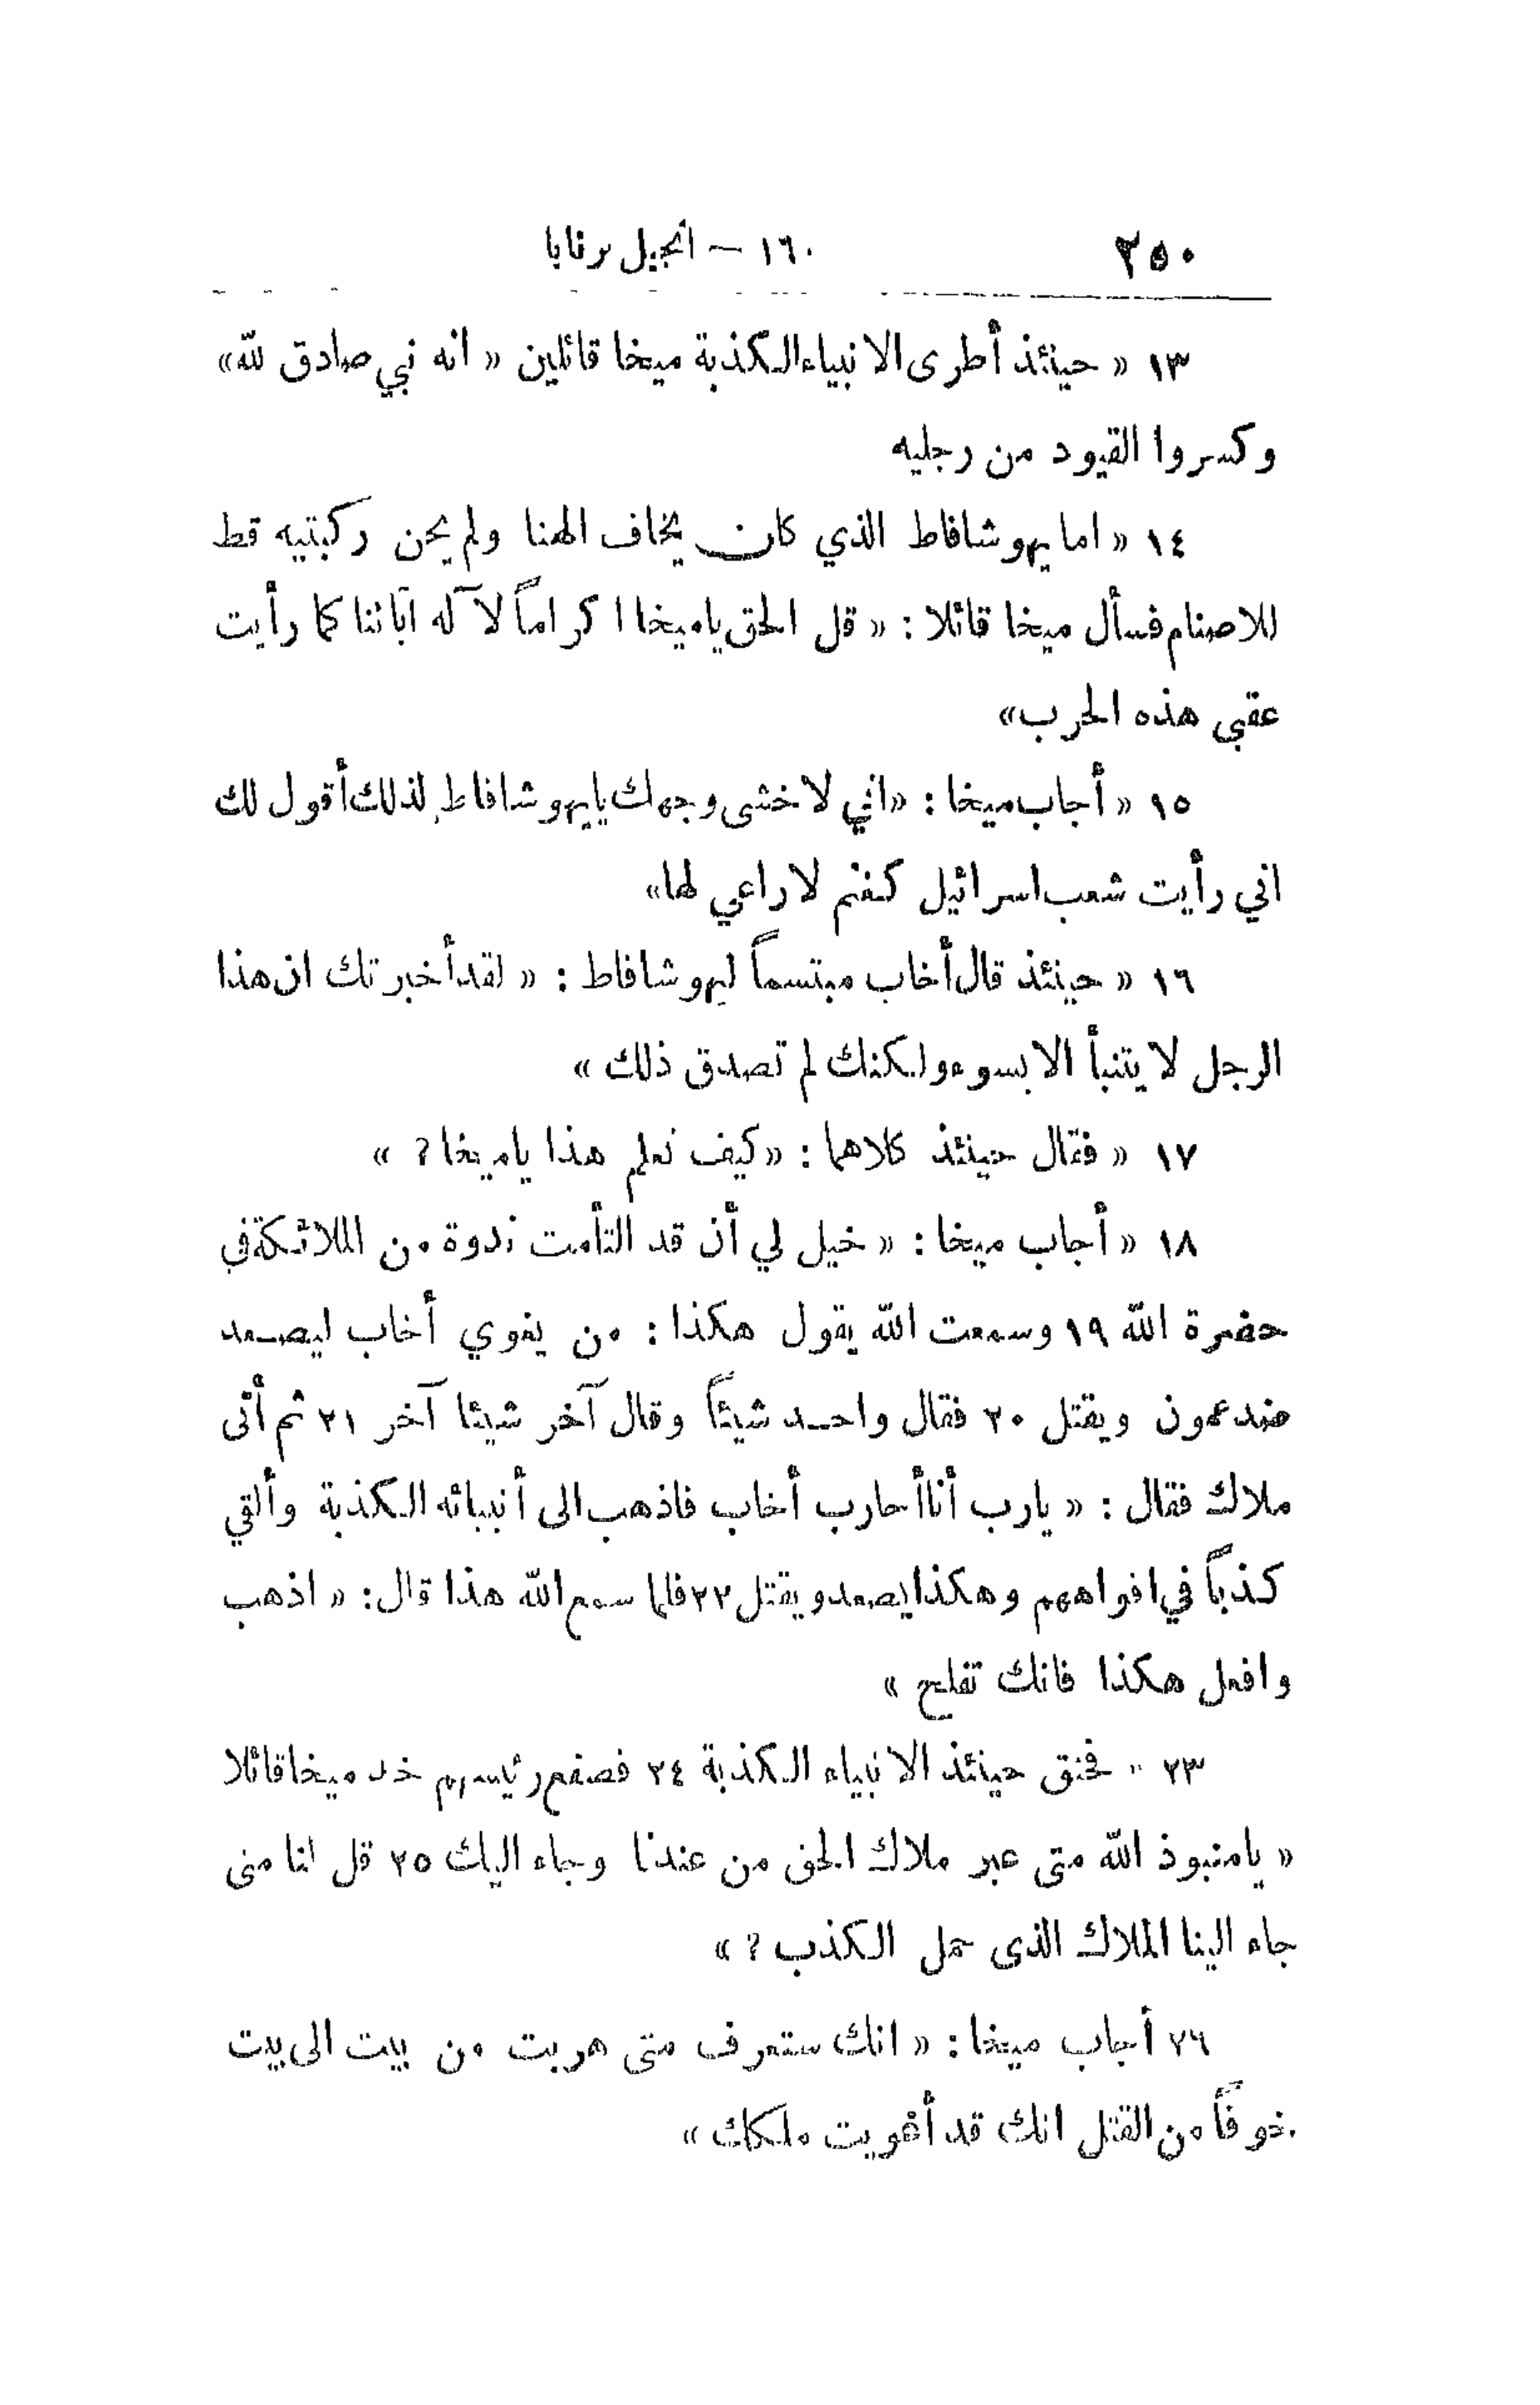 ٢٥٠ ١٦٠ — انجيل برنابا
١٣ « حينئذ أطرى الانبياء الكذبة ميخا قائلين « انه نبي صادق لله »
وكسروا القيود من رجليه
١٤ « اما يهوشافاط الذي كان يخاف الهنا ولم يحن ركبتيه قط
للاصنام فسأل ميخا قائلا : « قل الحق ياميخا اكراماً لآله آبائنا كما رأيت
عقبى هذه الحرب»
١٥ « أجاب ميخا : «اني لاخشى وجهك يايهوشافاط لذلك أقول لك
اني رأيت شعب اسرائيل كغنم لاراعي لها»
١٦ « حينئذ قال أخاب مبتسماً ليهوشافاط : « لقد أخبرتك ان هذا
الرجل لا يتنبأ الا بسوء ولكنك لم تصدق ذلك »
١٧ « فقال حينئذ كلاهما : «كيف تعلم هذا ياميخا؟ »
١٨ « أجاب ميخا : « خيل لي أن قد التأمت ندوة من الملائكة في
حضرة الله ١٩ وسمعت الله يقول هكذا : من يغوي أخاب ليصعد
ضد عمون ويقتل ٢٠ فقال واحد شيئاً وقال آخر شيئا آخر ٢١ ثم أتى
ملاك فقال : « يارب أنا أحارب أخاب فاذهب الى أنبيائه الكذبة وألقي
كذباً في افواههم وهكذا يصعد ويقتل ٢٢ فلما سمع الله هذا قال : « اذهب
وافعل هكذا فانك تفلح »
٢٣ « فحنق حينئذ الانبياء الكذبة ٢٤ فصفع رئيسهم خد ميخا قائلا
« يامنبوذ الله متى عبر ملاك الحق من عندنا وجاء اليك ٢٥ قل لنا متى
جاء الينا الملاك الذى حمل الكذب ؟ »
٢٦ أجاب ميخا : « انك ستعرف متى هربت من بيت الى بيت
خوفاً من القتل انك قد أغويت ملكك »